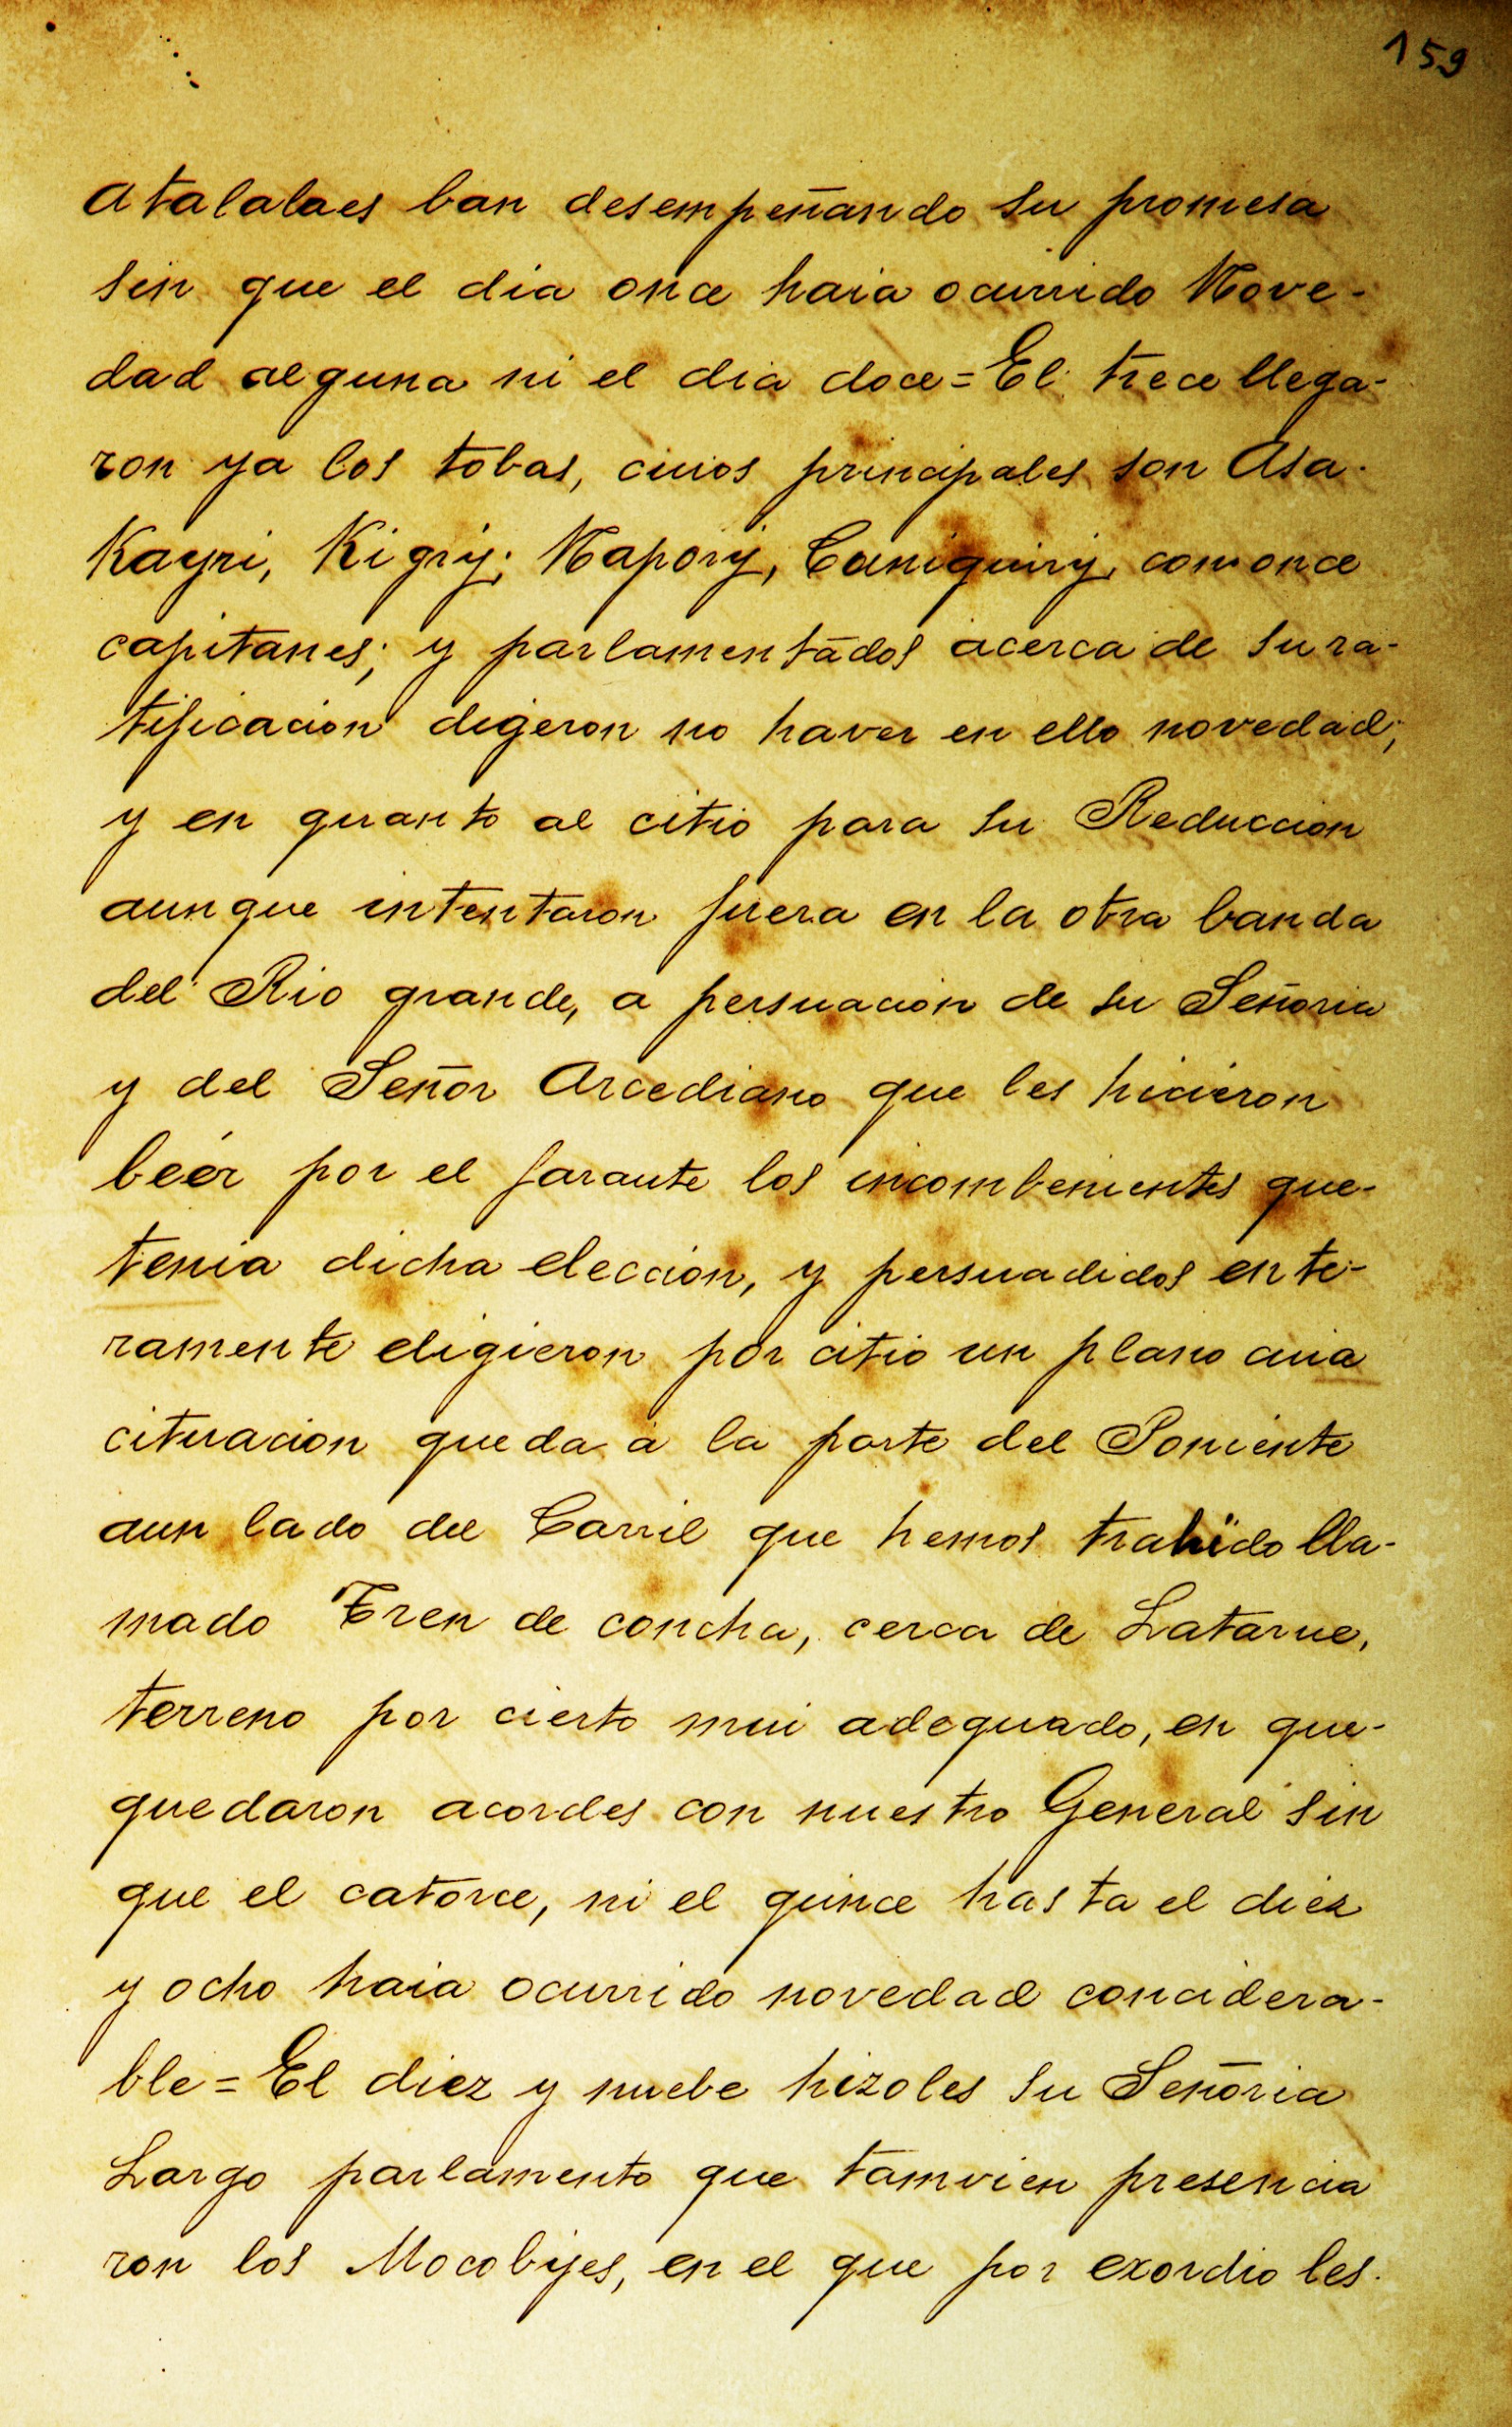 159
Atalalaes ban desempeñando su promesa
sin que el dia once haia ocurrido Nove-
dad alguna ni el dia doce = El trece llega-
ron ya los tobas, cuios principales son Asa-
Kayri, Kigrij, Naporij, Caniquirij, con once
capitanes; y parlamentados acerca de su ra-
tificacion digeron no haver en ello novedad;
y en quanto al citio para su Reduccion
aunque intentaron fuera en la otra banda
del Rio grande, a persuacion de su Señoria
y del Señor Arcediano que les hicieron
beér por el farante los incombenientes que-
tenia dicha eleccion, y persuadidos ente-
ramente eligieron por citio un plano cuia
cituacion queda á la parte del Poniente
aun lado del Carril que hemos trahido lla-
mado Tren de concha, cerca de Lataрие,
terreno por cierto mui adequado, en que-
quedaron acordes con nuestro General sin
que el catorce, ni el quince hasta el diez
y ocho haia ocurrido novedad concidera-
ble = El diez y nuebe hizoles su Señoria
Largo parlamento que tamvien presencia
ron los Mocobijes, en el que por exordio les.